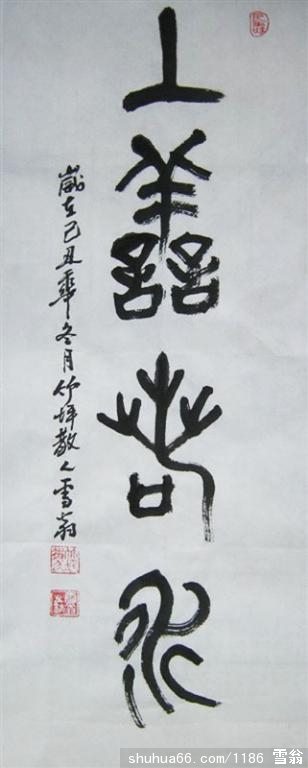 上善若水
歲在己丑年冬月竹坪散人雪翁
shuhua66.com/1186 雪翁